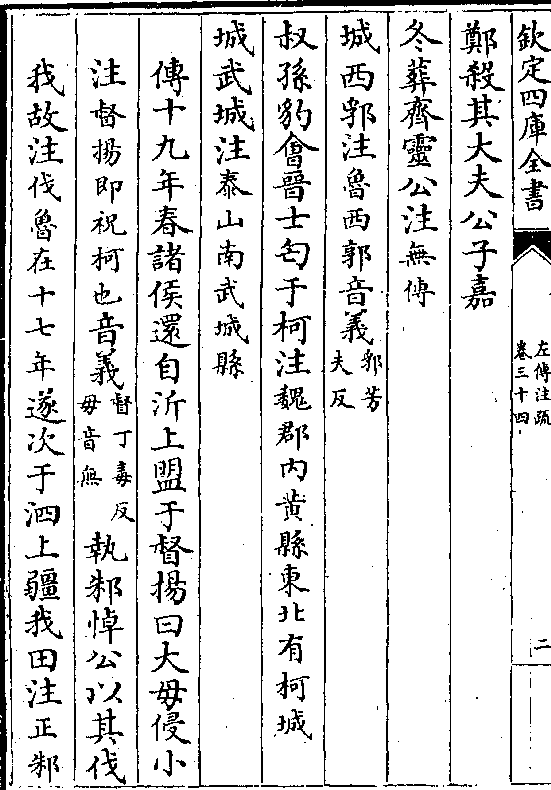 欽定四庫全書
左傳注疏
卷三十四
二
鄭殺其大夫公子嘉
冬葬齊靈公注無傳
城西郛注魯西郭音義郛芳夫反
叔孫豹會晉士匄于柯注魏郡内黄縣東北有柯城
城武城注泰山南武城縣
傳十九年春諸侯還自沂上盟于督揚曰大毋侵小
注督揚即祝柯也音義督丁毒反毋音無執邾悼公以其伐
我故注伐魯在十七年遂次于泗上疆我田注正邾